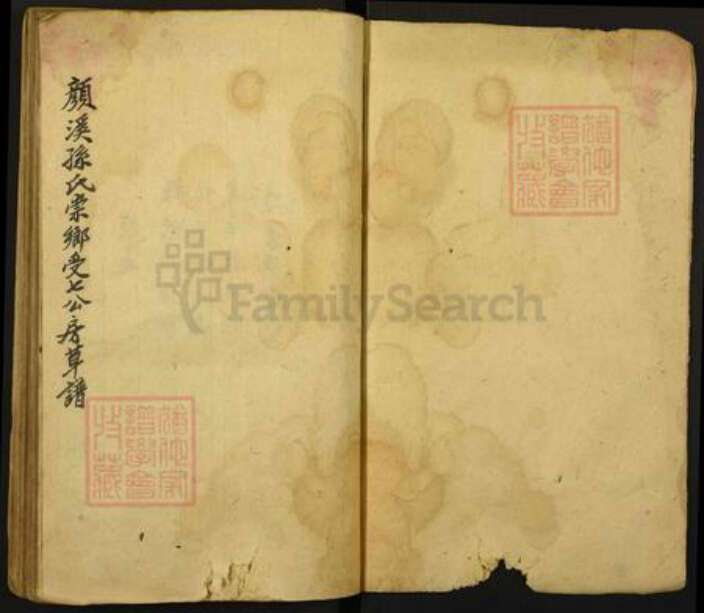 顏溪孫氏崇鄉受七公房草譜
猶他家
譜學會
收藏
猶他家
譜學會
收藏
FamilySearch